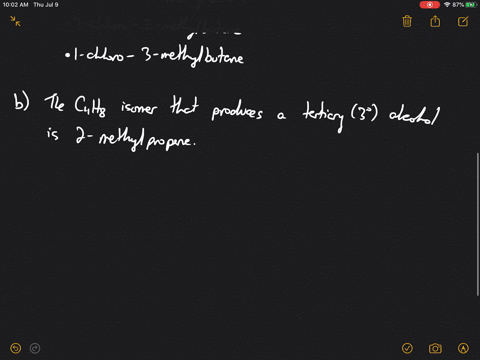 10:02 AM Thu Jul 9
87%
• 1-chloro-3-methylbutane
b) The C4H8 isomer that produces a tertiary (3°) alcohol
is 2-methylpropene.